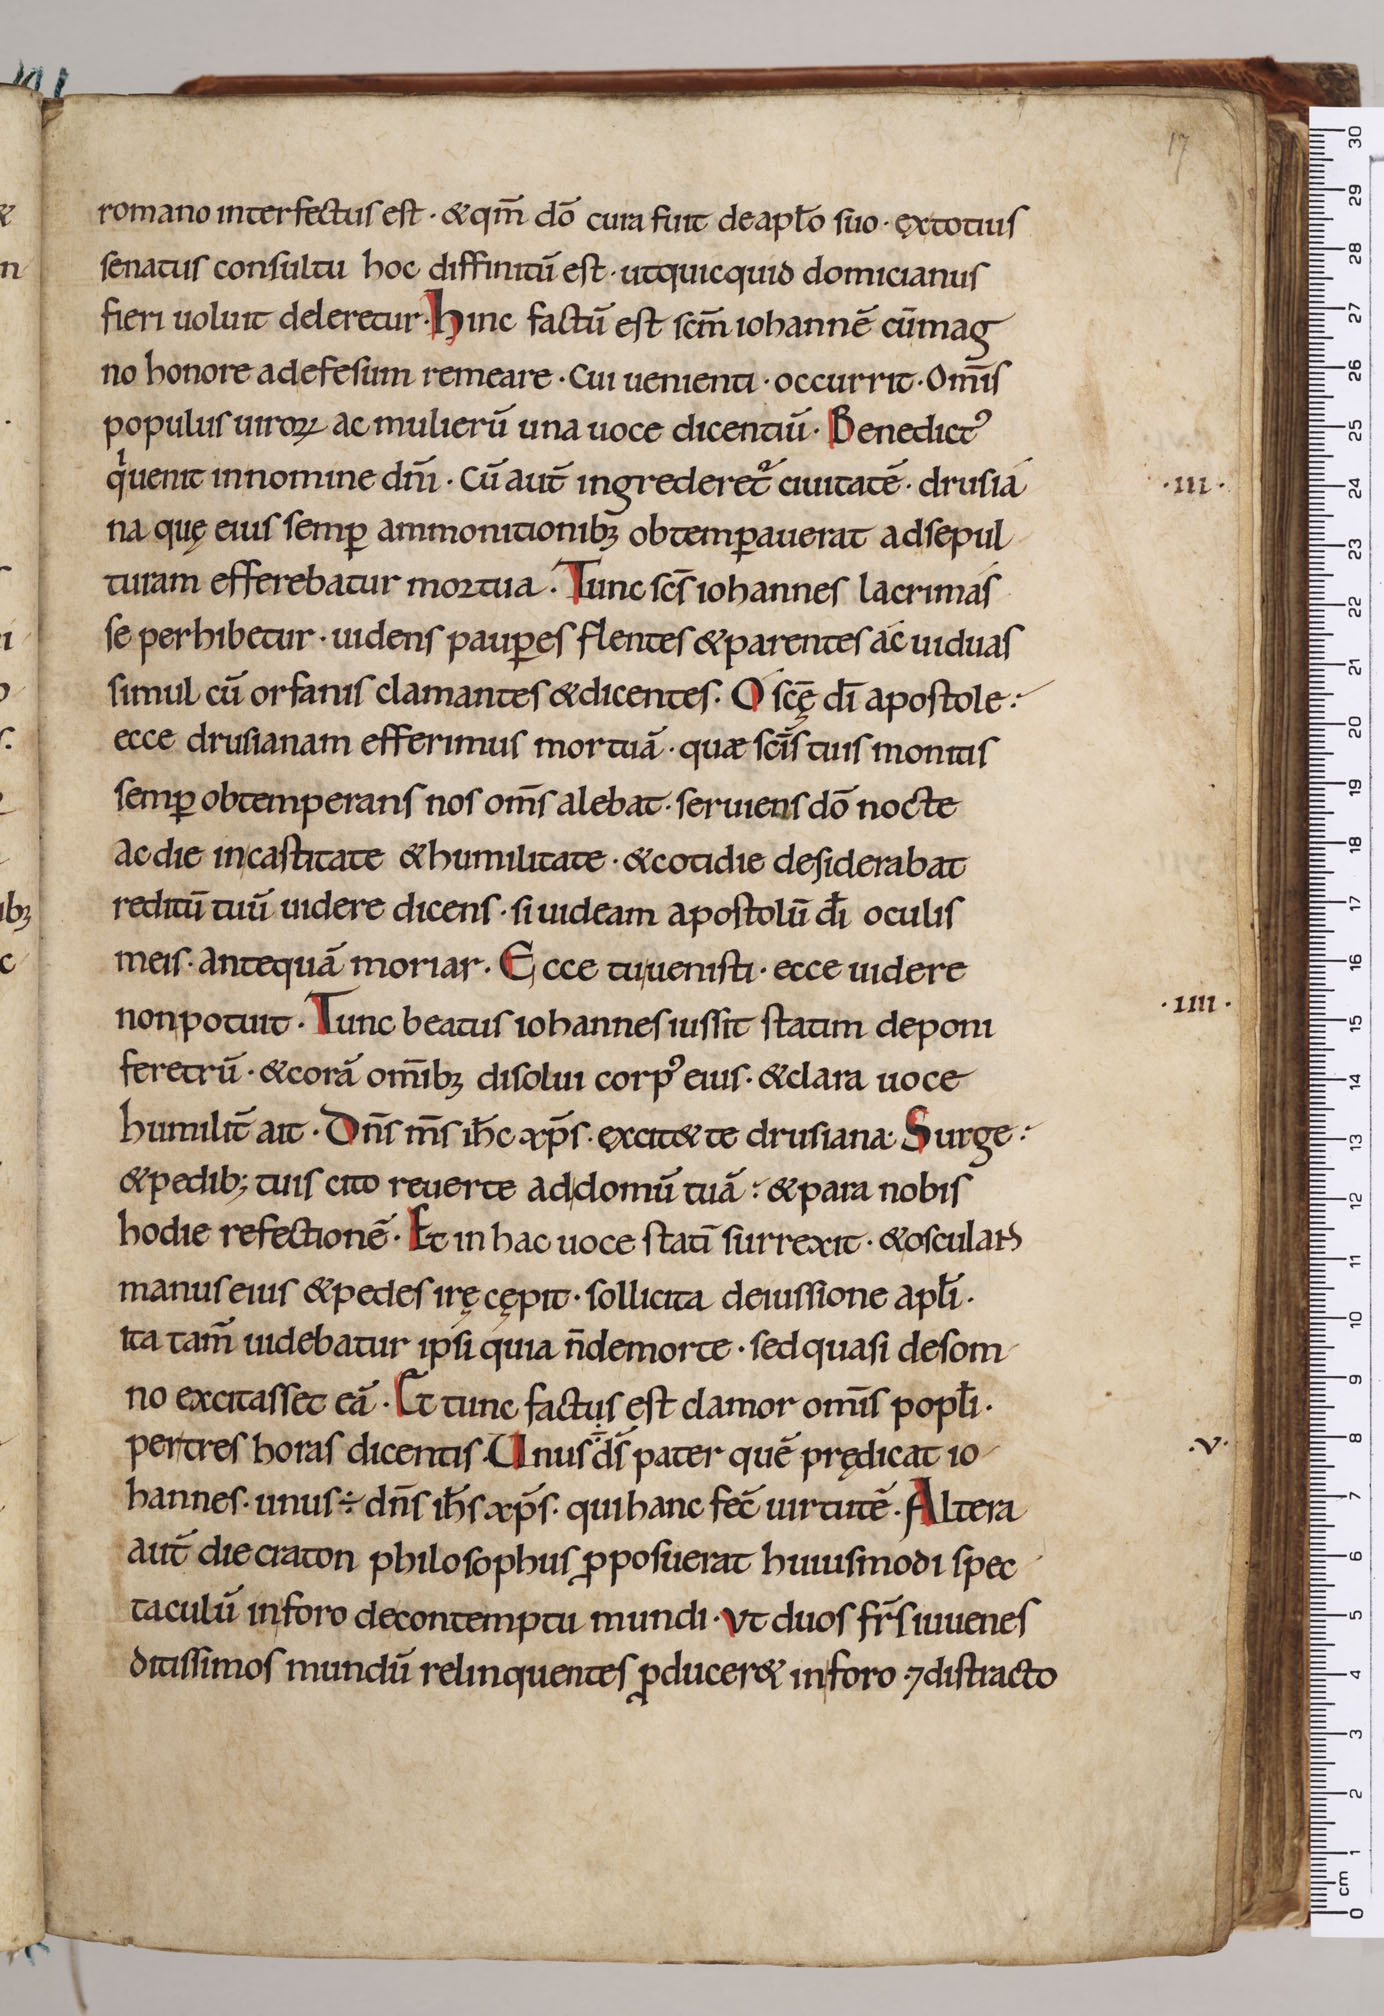 17
romano interfectus est · &qm̄ dō cura fuit deapl̄o suo · extotius
senatus consultu hoc diffinitū est · utquicquid domicianus
fieri uoluit deleretur · hinc factū est scm̄ iohannē cū mag
no honore adefesum remeare · Cui uenienti · occurrit · Om̄is
populus uiroꝝ ac mulierū una uoce dicentiū · Benedictꝰ
qͥ uenit innomine dn̄i · Cū aut̄ ingrederet᷑ ciuitatē · drusia
· III ·
na quę eius semꝑ ammonitionibꝫ obtemꝑauerat adsepul
turam efferebatur mortua · Tunc scs̄ iohannes lacrimas
se perhibetur · uidens pauꝑes flentes &parentes ac uiduas
simul cū orfanis clamantes &dicentes · O scę̄ dī apostole ·
ecce drusianam efferimus mortuā · quæ scīs tuis monitis
semꝑ obtemperans nos om̄s alebat · seruiens dō nocte
ac die incastitate &humilitate · &cotidie desiderabat
reditū tuū uidere dicens · si uideam apostolū dī oculis
meis · antequā moriar · Ecce tu uenisti · ecce uidere
non potuit · Tunc beatus iohannes iussit statim deponi
· IIII ·
feretrū · &corā om̄ibꝫ disolui corpꝰ eius · &clara uoce
humilit̄ ait · Dn̄s m̄s ih̄c xp̄s · excit& te drusiana · Surge ·
&pedib; tuis cito reuerte addomū tuā · &para nobis
hodie refectionē · Et in hac uoce statī surrexit · &osculans
manus eius &pedes irę cępit · sollicita deiussione apl̄i ·
ita tam̄ uidebatur ipsi quia n̄ demorte · sed quasi desom
no excitasset eā · Et tunc factus est clamor om̄is popl̄i ·
per tres horas dicentis · Unus ÷ ds̄ pater quē prędicat io
· V ·
hannes · unus ÷ dn̄s ih̄s xp̄s · qui hanc fec̄ uirtutē · Altera
aut̄ die craton philosophus ꝓposuerat huiusmodi spec
taculū inforo decontemptu mundi · Vt duos fr̄s iuuenes
ditissimos mundū relinquentes ꝓducer& inforo · ⁊distracto